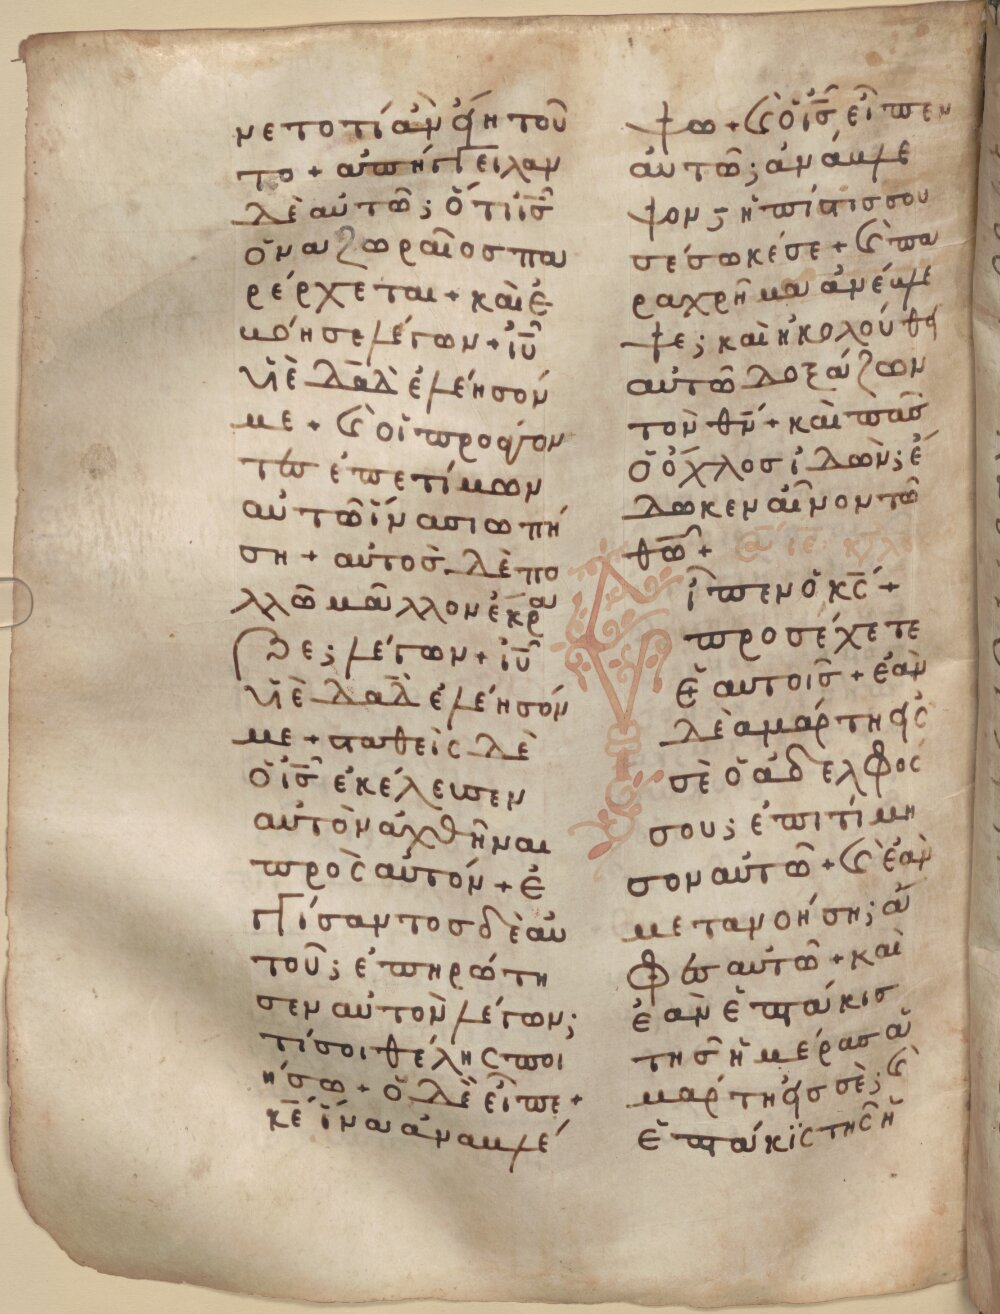 μετο τί ἂν εἴη τοῦ
το + ἀπήγγειλαν
δὲ αὐτῶ; ὅτι ι̅ς̅
ὁ ναζωραῖος πα
ρέρχεται + καὶ ἐ
βόησε λέγων + ι̅υ̅
υἱὲ δα̅δ̅ ἐλέησόν
με + ϗ οἱ προάγον
τες ἐπετίμων
αὐτῶ ἵνα σιωπή
ση + αὐτὸς δὲ πο
λλῶ μᾶλλον ἔκρα
ζε; λέγων + ι̅υ̅
υἱὲ δα̅δ̅ ἐλέησόν
με + σταθεὶς δὲ
ὁ ι̅ς̅ ἐκέλευσεν
αὐτὸν ἀχθῆναι
πρὸς αὐτόν + ἐ
γγίσαντος δὲ αὐ
τοῦ; ἐπηρώτη
σεν αὐτὸν λέγων;
τί σοι θέλης ποι
ήσω + ὁ δὲ εἶπε +
κ̅ε̅ ἵνα ἀναβλέ
ψω + ϗ ὁ ι̅ς̅ εἶπεν
αὐτῶ; ἀνάβλε
ψον; ἡ πίστις σου
σέσωκέ σε + ϗ πα
ραχρῆμα ἀνέβλε
ψε; καὶ ἠκολούθει
αὐτῶ δοξάζων
τὸν θ̅ν̅ + καὶ πᾶς
ὁ ὄχλος ἰδὼν; ἔ
δωκεν αἶνον τῶ
θ̅ω̅ +
Εἶπεν ὁ κ̅ς̅ +
προσέχετε
ἑαυτοῖς + ἐὰν
δὲ ἁμάρτη εἰς
σὲ ὁ ἀδελφός
σου; ἐπιτίμη
σον αὐτῶ + ϗ ἐὰν
μετανοήση; ἄ
φες αὐτῶ + καὶ
ἐὰν ἑπτάκις
τῆς ἡμέρας ἁ
μάρτη εἰς σὲ; ϗ
ἑπτάκις τῆς ἡ